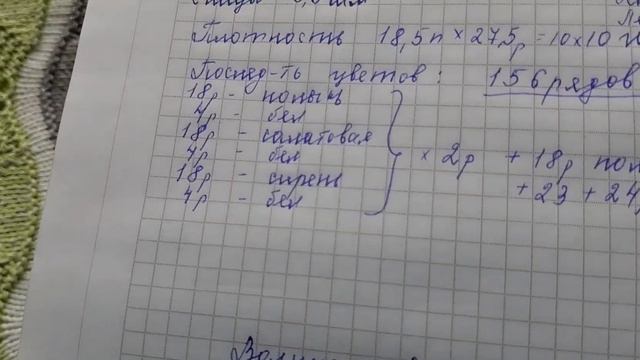 Плотность 18,5п × 27,5р = 10х10
Послед-ть цветов: 156 рядов
18р - полынь
4р - бел
18р - салатовая
4р - бел
18р - сирень
4р - бел
× 2р + 18р пол
+ 23 + 24